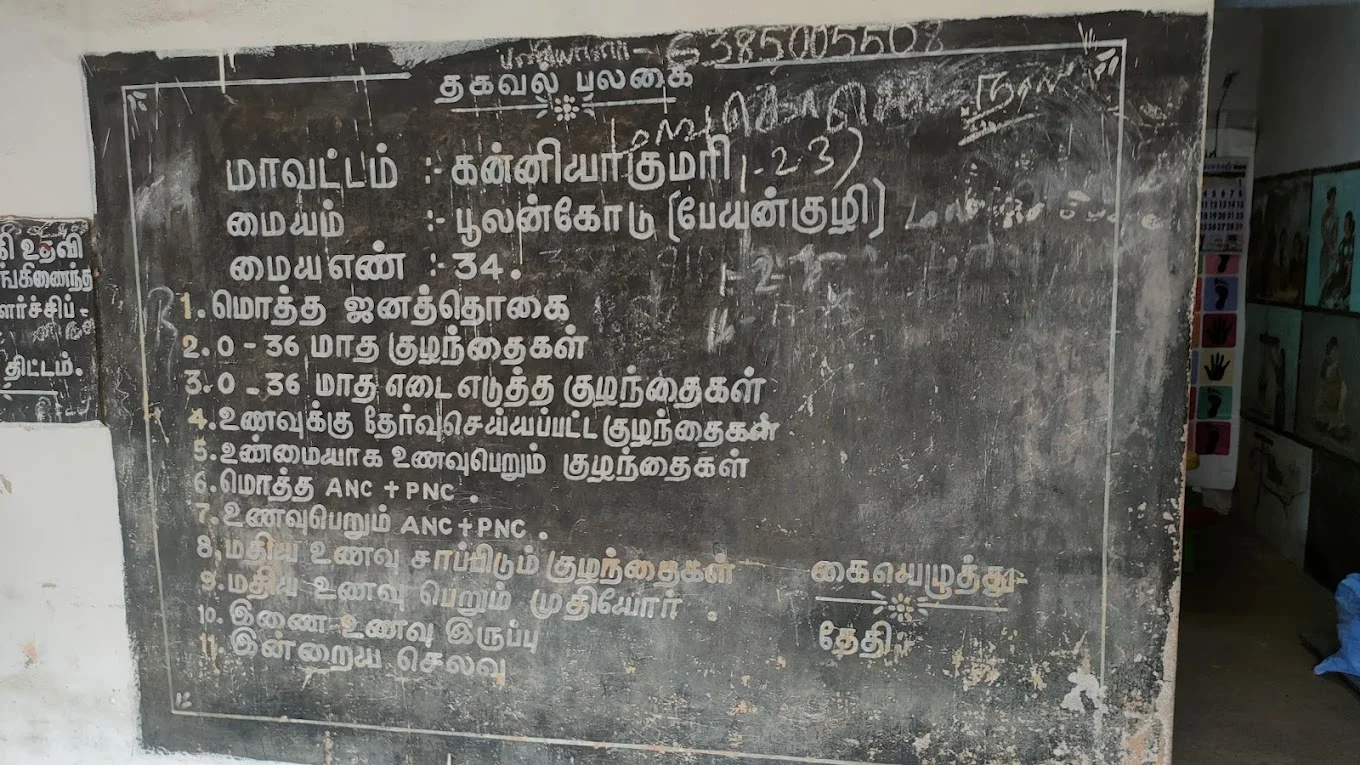 6385005508
தகவல் பலகை
மாவட்டம் :- கன்னியாகுமரி
மையம் :- பூலன்கோடு (பேயன்குழி)
மைய எண் :- 34.
1. மொத்த ஜனத்தொகை
2. 0 - 36 மாத குழந்தைகள்
3. 0 - 36 மாத எடை எடுத்த குழந்தைகள்
4. உணவுக்கு தேர்வுசெய்யப்பட்ட குழந்தைகள்
5. உண்மையாக உணவுபெறும் குழந்தைகள்
6. மொத்த ANC + PNC .
7. உணவுபெறும் ANC + PNC .
8. மதிய உணவு சாப்பிடும் குழந்தைகள்
9. மதிய உணவு பெறும் முதியோர் .
10. இணை உணவு இருப்பு
11. இன்றைய செலவு
கையெழுத்து:-
தேதி :-
உதவி
ங்கிணைந்த
ளர்ச்சிப் -
திட்டம்.